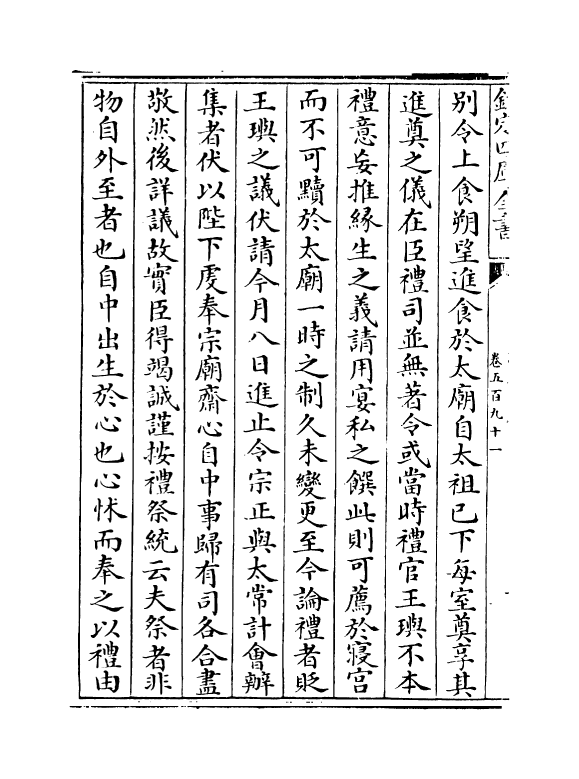 欽定四庫全書
卷五百九十一
別令上食朔望進食於太廟自太祖已下每室奠享其
進奠之儀在臣禮司並無著令或當時禮官王璵不本
禮意妄推緣生之義請用宴私之饌此則可薦於寢宮
而不可黷於太廟一時之制久未變更至今論禮者貶
王璵之議伏請今月八日進止令宗正與太常計會辦
集者伏以陛下虔奉宗廟齋心自中事歸有司各合盡
敬然後詳議故實臣得竭誠謹按禮祭統云夫祭者非
物自外至者也自中出生於心也心怵而奉之以禮由